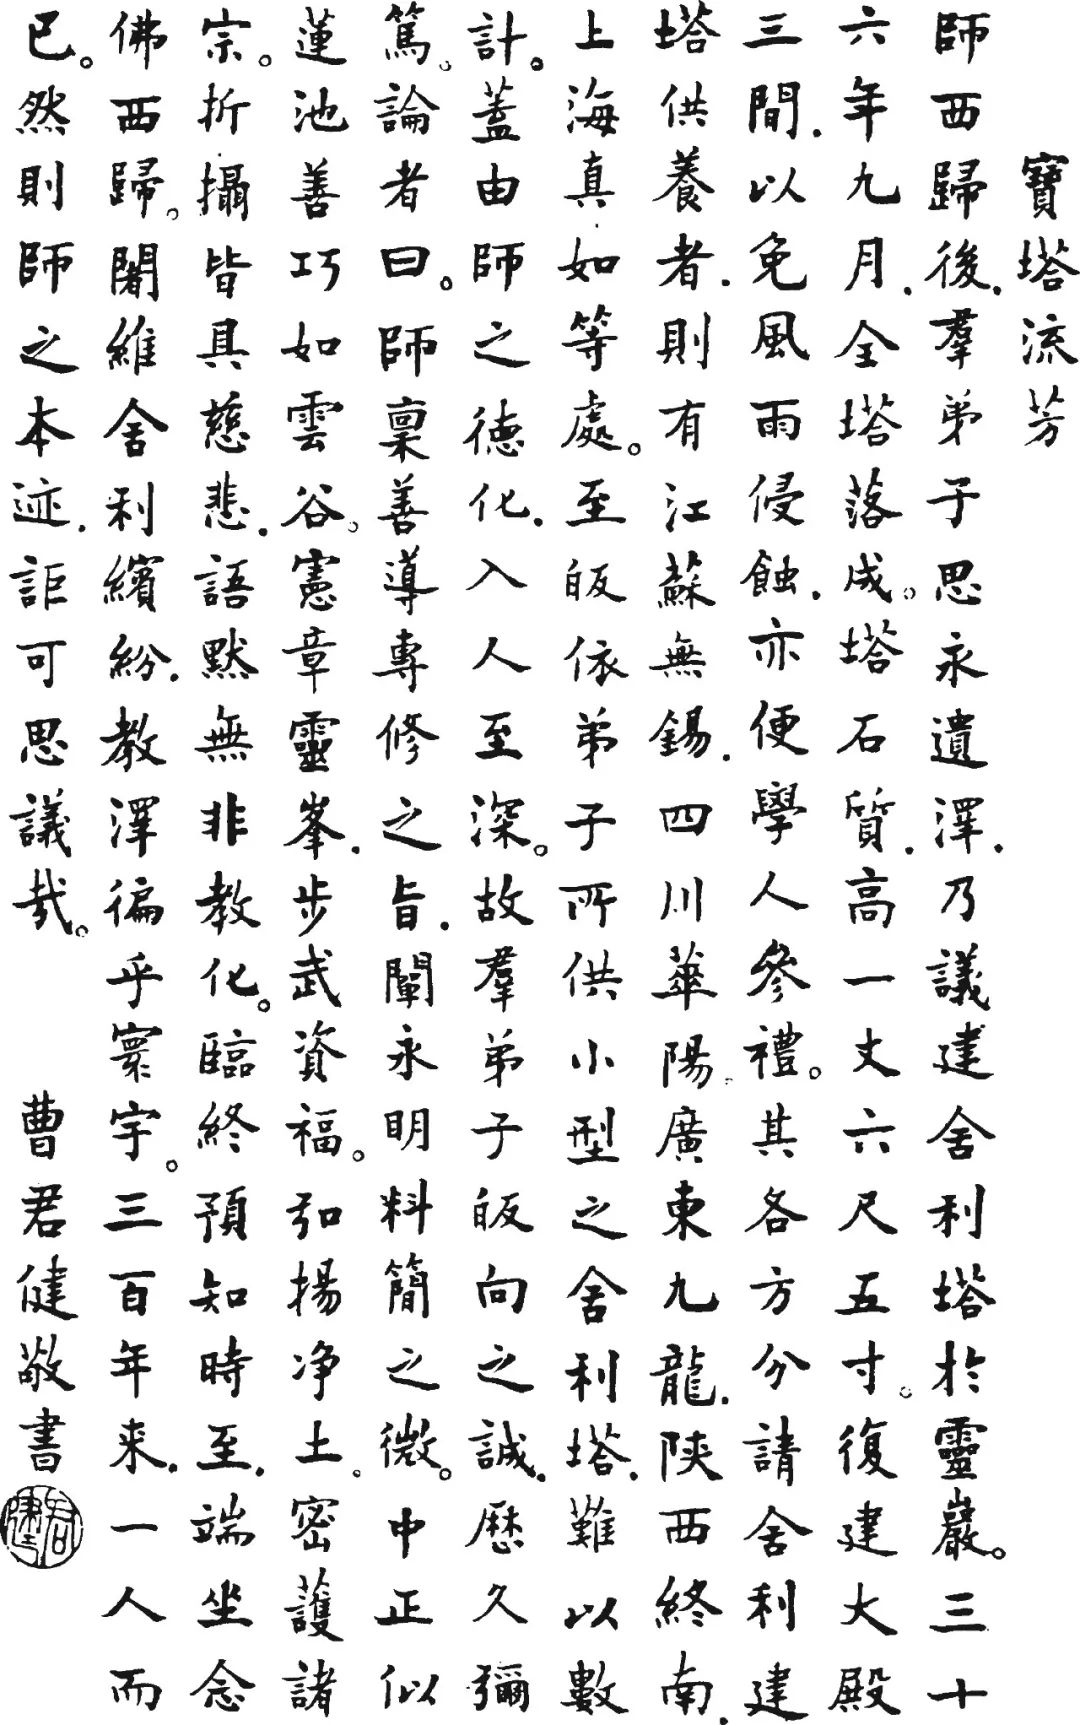 寶塔流芳
師西歸後.羣弟子思永遺澤.乃議建舍利塔於靈巖。三十
六年九月.全塔落成。塔石質.高一丈六尺五寸。復建大殿
三間.以免風雨侵蝕.亦便學人參禮。其各方分請舍利建
塔供養者.則有江蘇無錫.四川華陽。廣東九龍.陝西終南.
上海真如等處。至皈依弟子所供小型之舍利塔.難以數
計。蓋由師之德化.入人至深。故羣弟子皈向之誠.歷久彌
篤。論者曰。師稟善導專修之旨.闡永明料簡之微。中正似
蓮池善巧如雲谷。憲章靈峯.步武資福。弘揚净土。密護諸
宗。折攝皆具慈悲.語默無非教化。臨終預知時至.端坐念
佛西歸。闍維舍利繽紛.教澤徧乎寰宇。三百年来.一人而
已。然則師之本迹.詎可思議哉。
曹君健敬書
君健